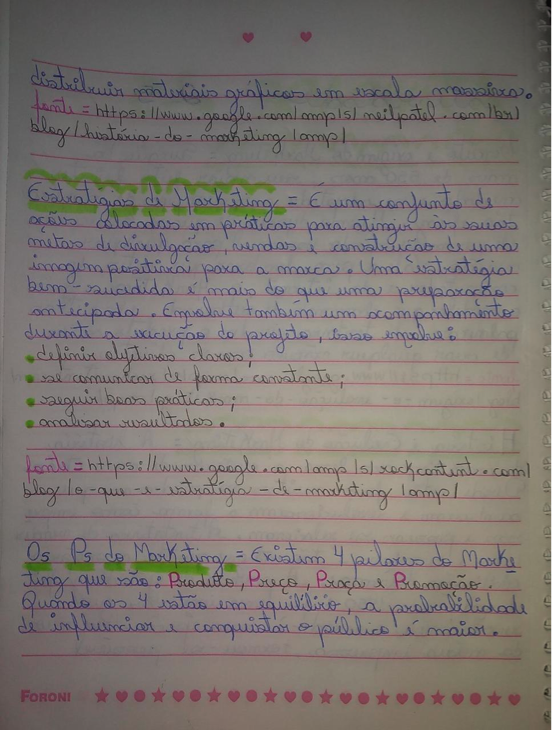 distribuir materiais gráficos em escala massiva.
fonte = https://www.google.com/amp/s/neilpatel.com/br/
blog/história-do-marketing/amp/
Estratégias de Marketing = É um conjunto de
ações colocadas em práticas para atingir às suas
metas de divulgação, vendas e construção de uma
imagem positiva para a marca. Uma estratégia
bem-sucedida é mais do que uma preparação
antecipada. Envolve também um acompanhamento
durante a execução do projeto, isso envolve:
• definir objetivos claros;
• se comunicar de forma constante;
• seguir boas práticas;
• analisar resultados.
fonte = https://www.google.com/amp/s/rockcontent.com/
blog/o-que-e-estratégia-de-marketing/amp/
Os Ps do Marketing = Existem 4 pilares do Marke
ting que são: Produto, Preço, Praça e Promoção.
Quando os 4 estão em equilíbrio, a probabilidade
de influenciar e conquistar o público é maior.
FORONI